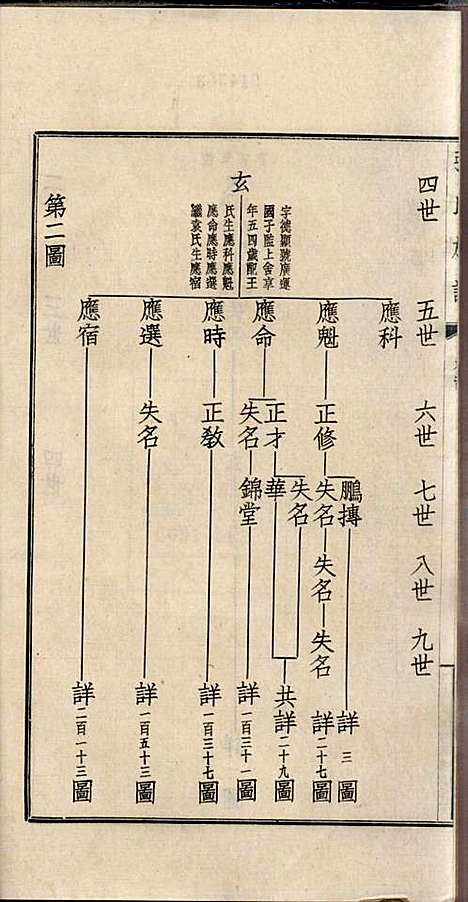 四世
五世
六世
七世
八世
九世
玄
字德顯號廣運
國子監上舍享
年五四歲配王
氏生應科應魁
應命應時應選
繼袁氏生應宿
應科
應魁
正修
鵬摶
詳三圖
失名
失名
失名
詳二十七圖
應命
正才
失名
華
共詳二十九圖
失名
錦堂
詳一百三十一圖
應時
正教
詳一百三十七圖
應選
失名
詳一百五十三圖
應宿
詳二百一十三圖
第二圖